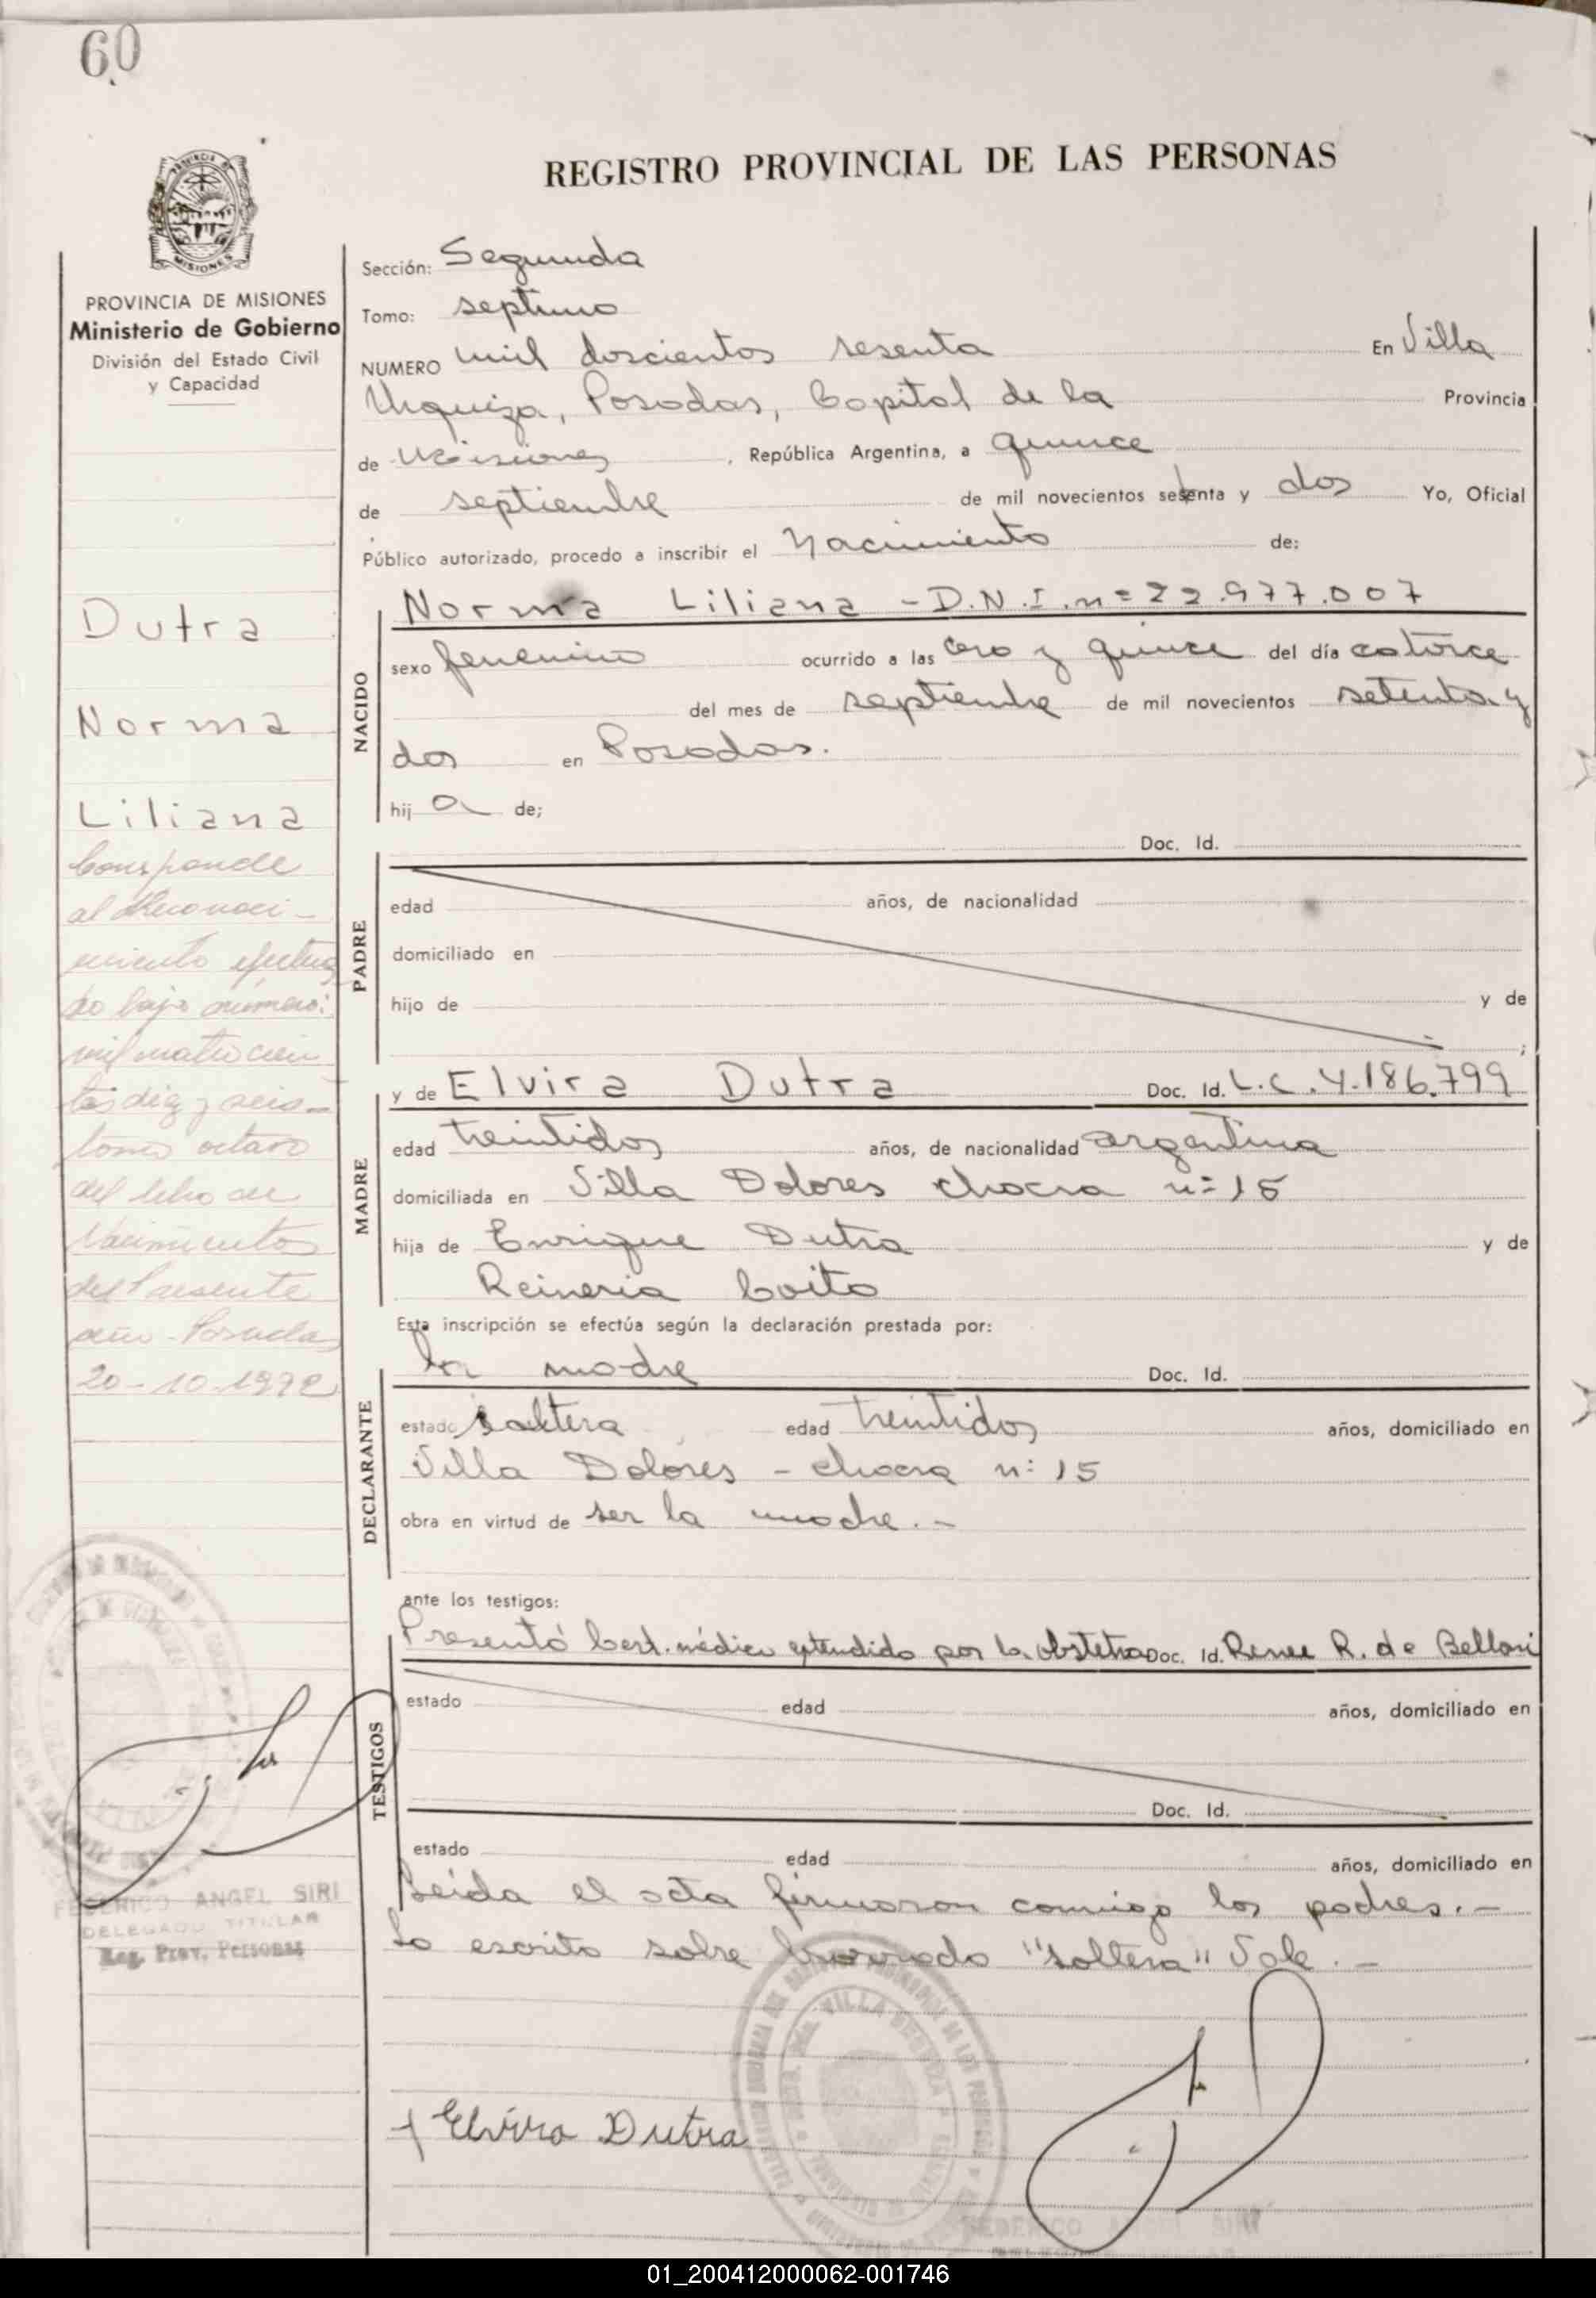 60
REGISTRO PROVINCIAL DE LAS PERSONAS
MISIONES
PROVINCIA DE MISIONES
Ministerio de Gobierno
División del Estado Civil
y Capacidad
Dutra
Norma
Liliana
Corresponde
al Reconoci-
miento efectua
do bajo número:
mil cuatrocien
tos diez y seis-
tomo octavo
del libro de
Nacimientos
del Presente
año - Posadas
20-10-1972
FEDERICO ANGEL SIRI
DELEGADO TITULAR
Reg. Prov. Personas
Sección: Segunda
Tomo: septimo
NUMERO mil doscientos sesenta En Villa
Urquiza, Posadas, Capital de la Provincia
de Misiones, República Argentina, a quince
de septiembre de mil novecientos setenta y dos Yo, Oficial
Público autorizado, procedo a inscribir el Nacimiento de:
NACIDO
Norma Liliana - D.N.I. n= 22.977.007
sexo femenino ocurrido a las cero y quince del día catorce
del mes de septiembre de mil novecientos setenta y
dos en Posadas.
hija de;
PADRE
Doc. Id.
edad años, de nacionalidad
domiciliado en
hijo de y de
;
MADRE
y de Elvira Dutra Doc. Id. L.C. 4.186.799
edad treintidos años, de nacionalidad argentina
domiciliada en Villa Dolores chacra n= 15
hija de Enrique Dutra y de
Reineria Coito
Esta inscripción se efectúa según la declaración prestada por:
DECLARANTE
la madre Doc. Id.
estado soltera edad treintidos años, domiciliado en
Villa Dolores - chacra n: 15
obra en virtud de ser la madre.-
ante los testigos:
TESTIGOS
Presentó Cert. médico extendido por la obstetra Doc. Id. Renee R. de Belloni
estado edad años, domiciliado en
Doc. Id.
estado edad años, domiciliado en
Leida el acta firmaron conmigo los padres.-
Lo escrito sobre borroneado "soltera" Vale.-
Elvira Dutra
VILLA URQUIZA
FEDERICO ANGEL SIRI
01_200412000062-001746